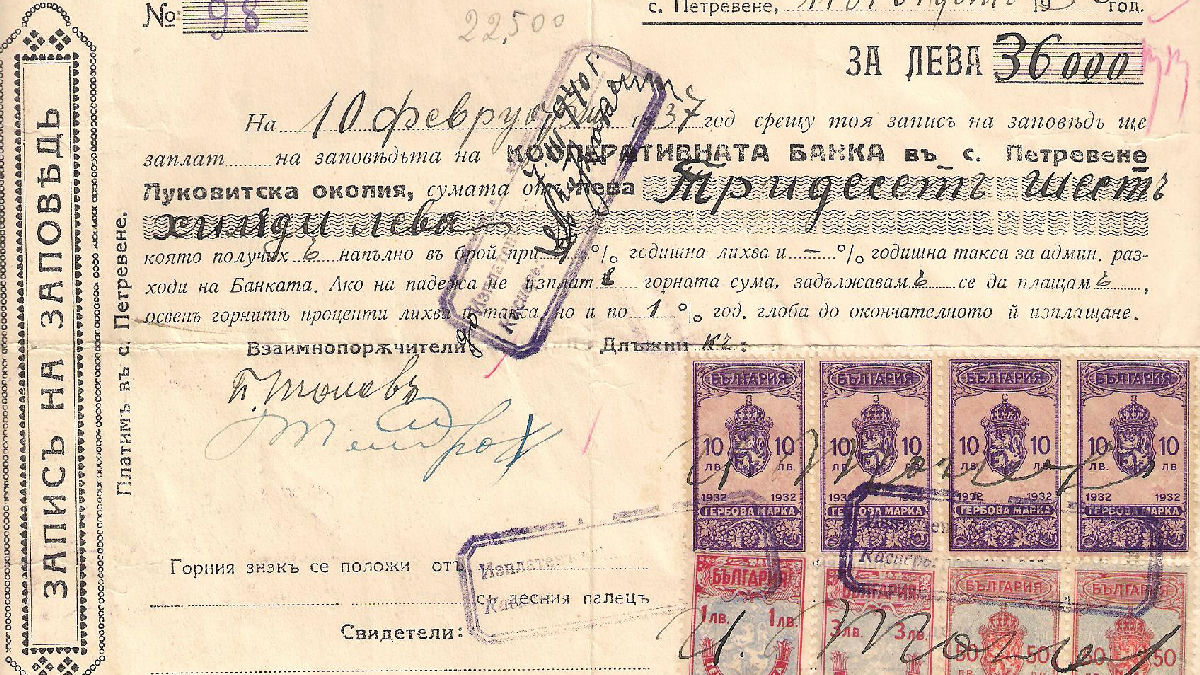 № 98
22,500
с. Петревене, 19 год.
ЗА ЛЕВА 36000
На 10 февруарий 1937 год срещу тоя записъ на заповѣдь ще
заплат на заповѣдьта на КООПЕРАТИВНАТА БАНКА въ с. Петревене
Луковитска околия, сумата отъ лева Тридесетъ шестъ
хиляди лева
която получихъ напълно въ брой при % годишна лихва и — % годишна такса за админ. раз-
ходи на Банката. Ако на падежа не изплат горната сума, задължавам се да плащам ,
освен горнитѣ проценти лихва и такса, но и по 1 % год. глоба до окончателното ѝ изплащане.
Взаимнопорѫчители:
Длъжникъ:
П. Тошевъ
ЗАПИСЪ НА ЗАПОВѢДЬ
Платимъ въ с. Петревене.
Горния знакъ се положи отъ
съ десния палецъ
Свидетели:
Изплатен
Касиеръ
БЪЛГАРИЯ БЪЛГАРИЯ БЪЛГАРИЯ БЪЛГАРИЯ
10 10 10 10 10 10 10 10
ЛВ. ЛВ. ЛВ. ЛВ. ЛВ. ЛВ. ЛВ. ЛВ.
1932 1932 1932 1932 1932 1932 1932 1932
ГЕРБОВА МАРКА ГЕРБОВА МАРКА ГЕРБОВА МАРКА ГЕРБОВА МАРКА
Касиеръ
БЪЛГАРИЯ БЪЛГАРИЯ БЪЛГАРИЯ БЪЛГАРИЯ
1лв. 1лв. 3лв. 3лв. 50 50 50 50